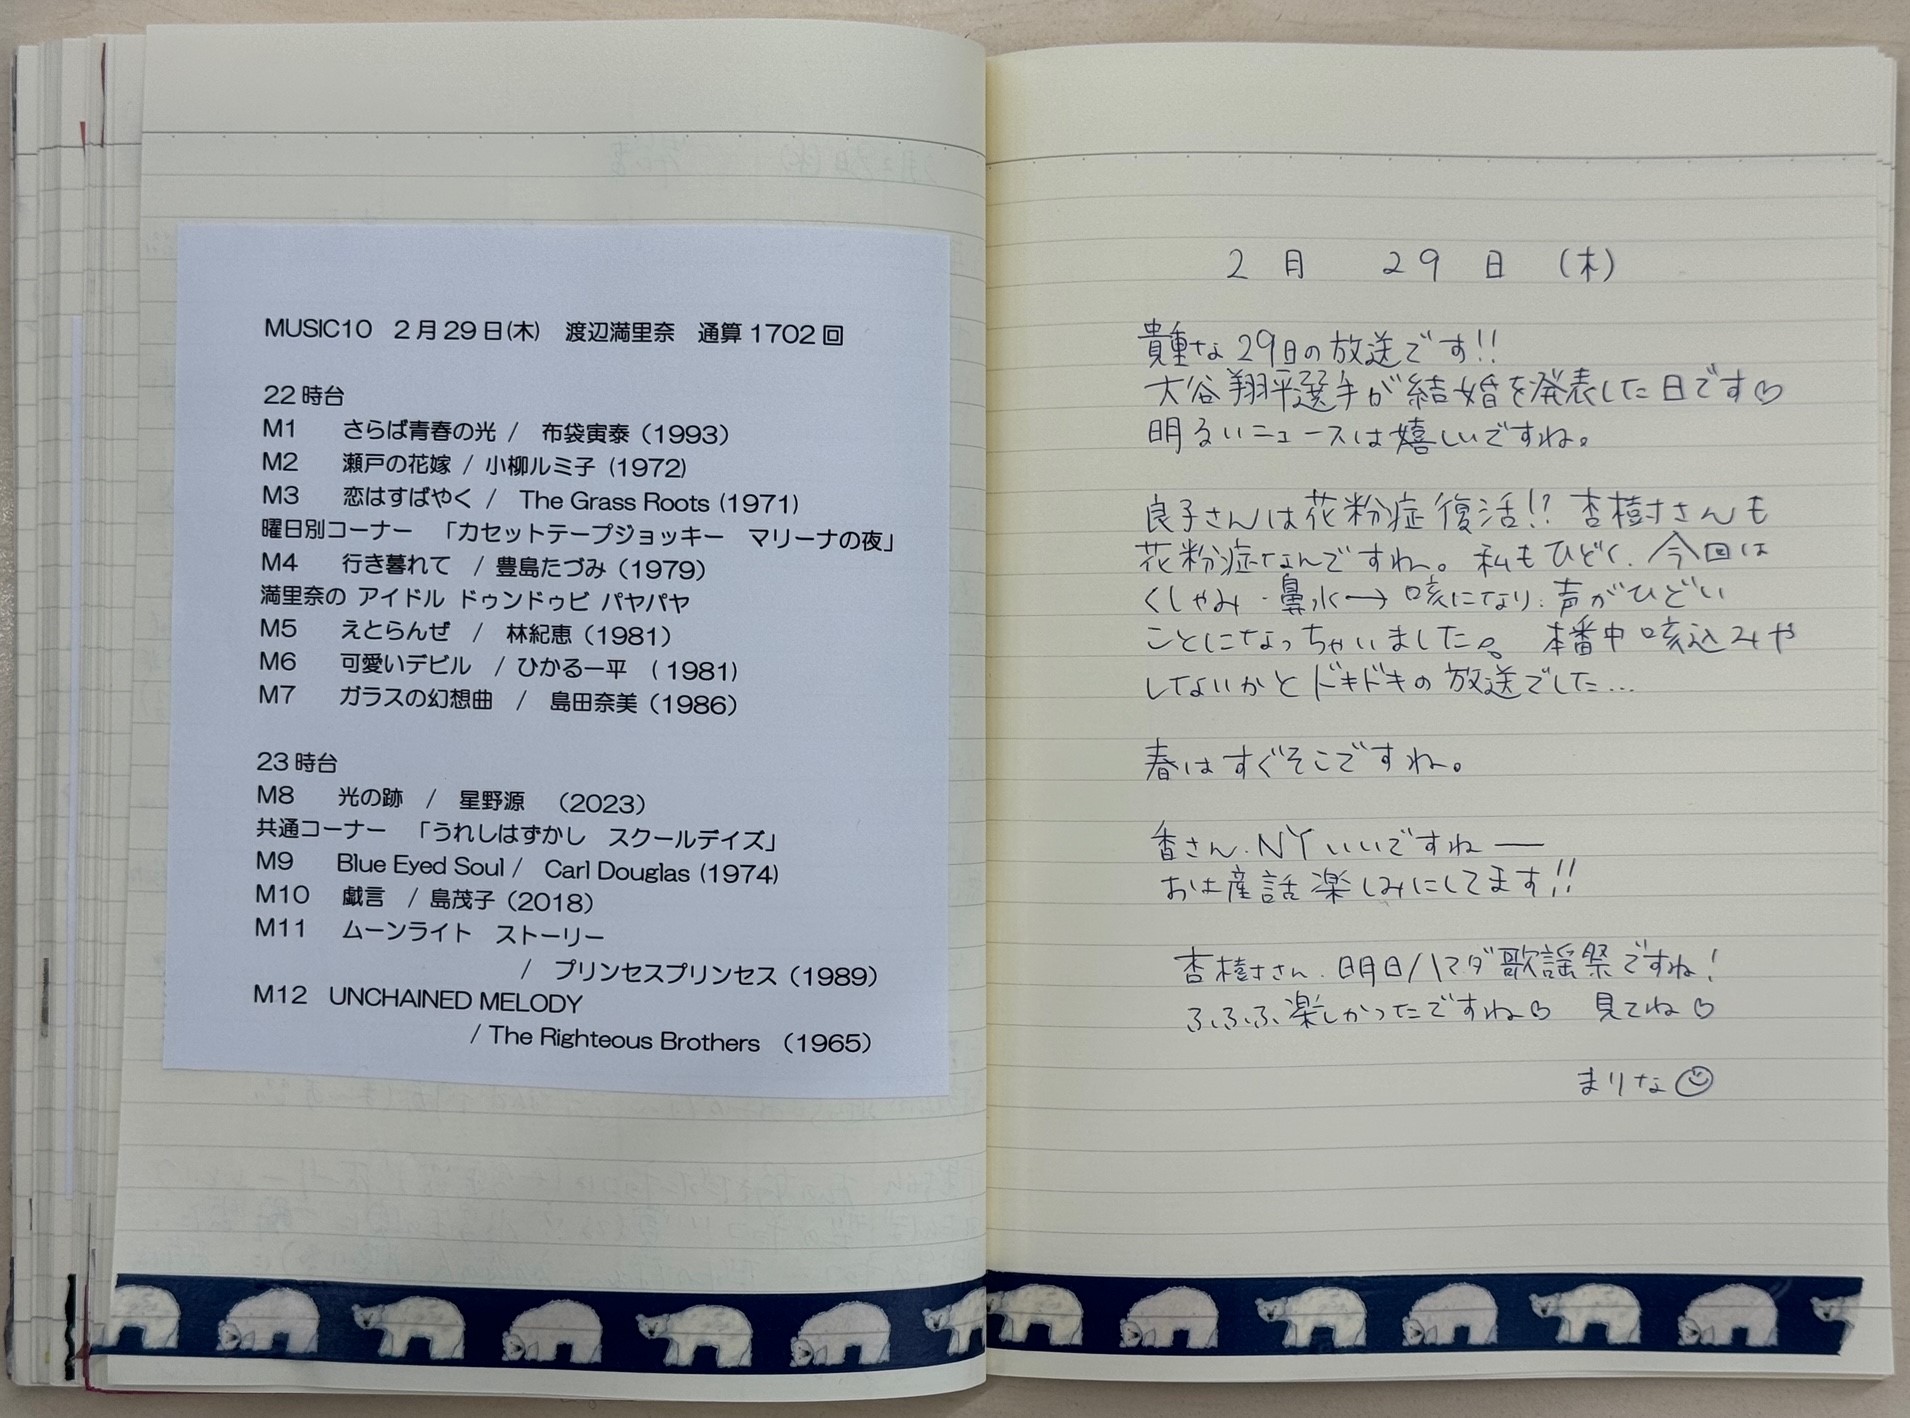 MUSIC10　2月29日(木)　渡辺満里奈　通算1702回
22時台
M1　さらば青春の光 /　布袋寅泰（1993）
M2　瀬戸の花嫁 / 小柳ルミ子 (1972)
M3　恋はすばやく /　The Grass Roots (1971)
曜日別コーナー　「カセットテープジョッキー　マリーナの夜」
M4　行き暮れて　/ 豊島たづみ（1979）
満里奈の アイドル ドゥンドゥビ パヤパヤ
M5　えとらんぜ　/　林紀恵（1981）
M6　可愛いデビル　/ ひかる一平　( 1981)
M7　ガラスの幻想曲　/　島田奈美（1986）
23時台
M8　光の跡　/　星野源　（2023）
共通コーナー　「うれしはずかし　スクールデイズ」
M9　Blue Eyed Soul /　Carl Douglas (1974)
M10　戯言　/ 島茂子（2018）
M11　ムーンライト　ストーリー
/　プリンセスプリンセス（1989）
M12　UNCHAINED MELODY
/ The Righteous Brothers　（1965）
2月　29日　(木)
貴重な29日の放送です!!
大谷翔平選手が結婚を発表した日です♡
明るいニュースは嬉しいですね。
良子さんは花粉症復活!? 杏樹さんも
花粉症なんですね。私もひどく、今回は
くしゃみ・鼻水→咳になり、声がひどい
ことになっちゃいました。本番中咳込みや
しないかとドキドキの放送でした…
春はすぐそこですね。
香さん、NYいいですねー
おは産話楽しみにしてます!!
杏樹さん、明日ハマダ歌謡祭ですね!
ふふふ楽しかったですね♡　見てね♡
まりな☺